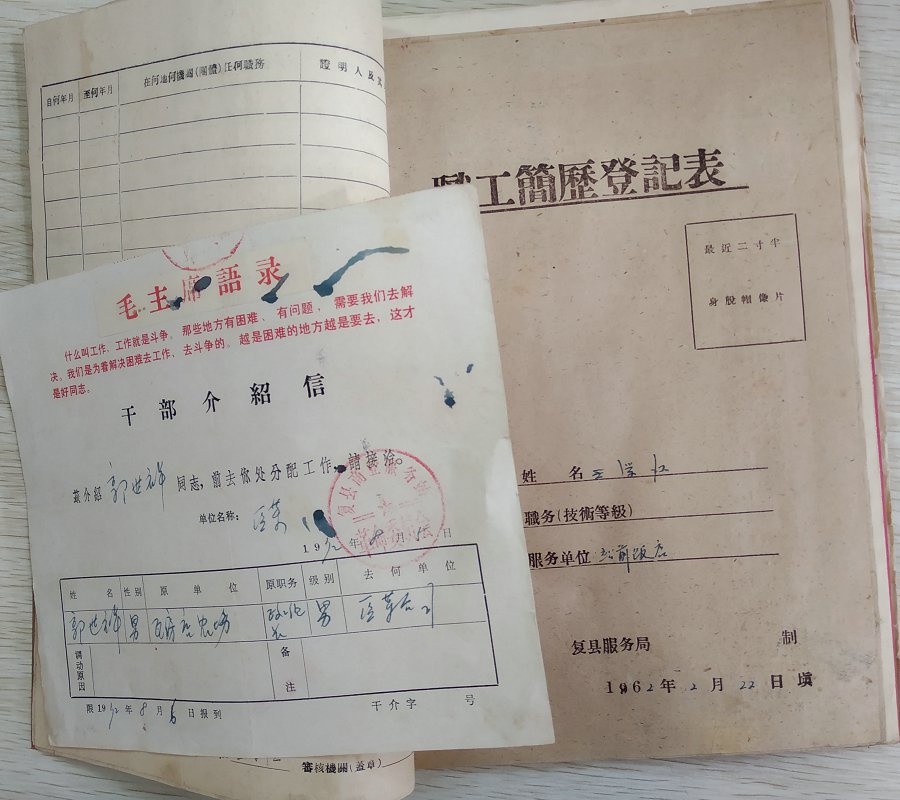 自何年月 至何年月 在何地何機關(團體)任何職務 證明人及其
毛主席語录
什么叫工作，工作就是斗争。那些地方有困难、有问题，需要我们去解
决。我们是为着解决困难去工作、去斗争的。越是困难的地方越是要去，这才
是好同志。
干部介紹信
兹介紹 郭世祥 同志，前去你处分配工作，請接洽。
单位名称：医葯
19 年 8 月 日
姓名 性别 原单位 原职务 级别 去何单位
郭世祥 男 男 医葯公司
调动原因 备注
限19 年 8 月 6 日报到 干介字 号
審核機關(蓋章)
職工簡歷登記表
最近二寸半
身脫帽像片
姓名 王
職务(技術等級)
服务单位 站前飯店
复县服务局 制
1962年2月22日填